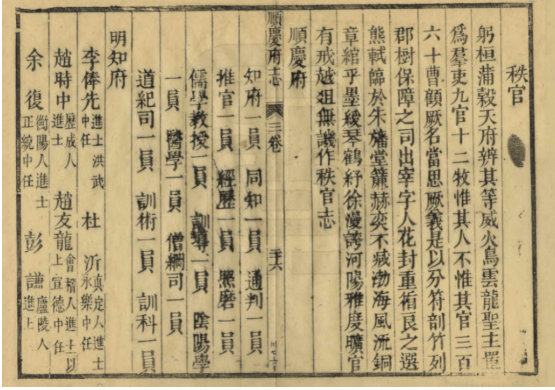 秩官
躬桓蒲穀天府辨其等威火鳥雲龍聖主置
為羣吏九官十二牧惟其人不惟其官三百
六十曹顧厥名當思厥義是以分符剖竹列
郡樹保障之司出宰字人花封重循良之選
熊軾歸於朱旛堂簾赫奕不減渤海風流銅
章綰乎墨綬琴鶴紓徐漫誇河陽雅度曠官
有戒越俎無譏作秩官志
順慶府
順慶府志 三卷
知府一員 同知一員 通判一員
推官一員 經歷一員 照磨一員
儒學教授一員 訓導一員 陰陽學
一員 醫學一員 僧綱司一員
道紀司一員 訓術一員 訓科一員
明知府
李俸先 進士洪武中任 杜沂 真定人進士永樂中任
趙時中 歷成人進士 趙友龍 會稽人進士以上宣德中任
余復 衡陽人進士正統中任 彭謙 廬陵人進士